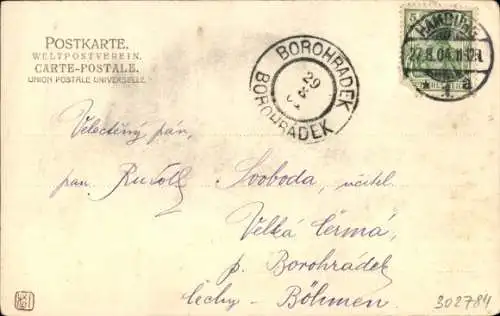 POSTKARTE.
WELTPOSTVEREIN.
CARTE-POSTALE.
UNION POSTALE UNIVERSELLE.
5
HAMBURG
27.8.04. 11-12N.
* 1. a
BOROHRADEK
29
8
BOROHRÁDEK
Velectěný pán,
pan Rudolf Svoboda, učitel
Velká Čermá,
p. Borohrádek
Čechy - Böhmen
302784